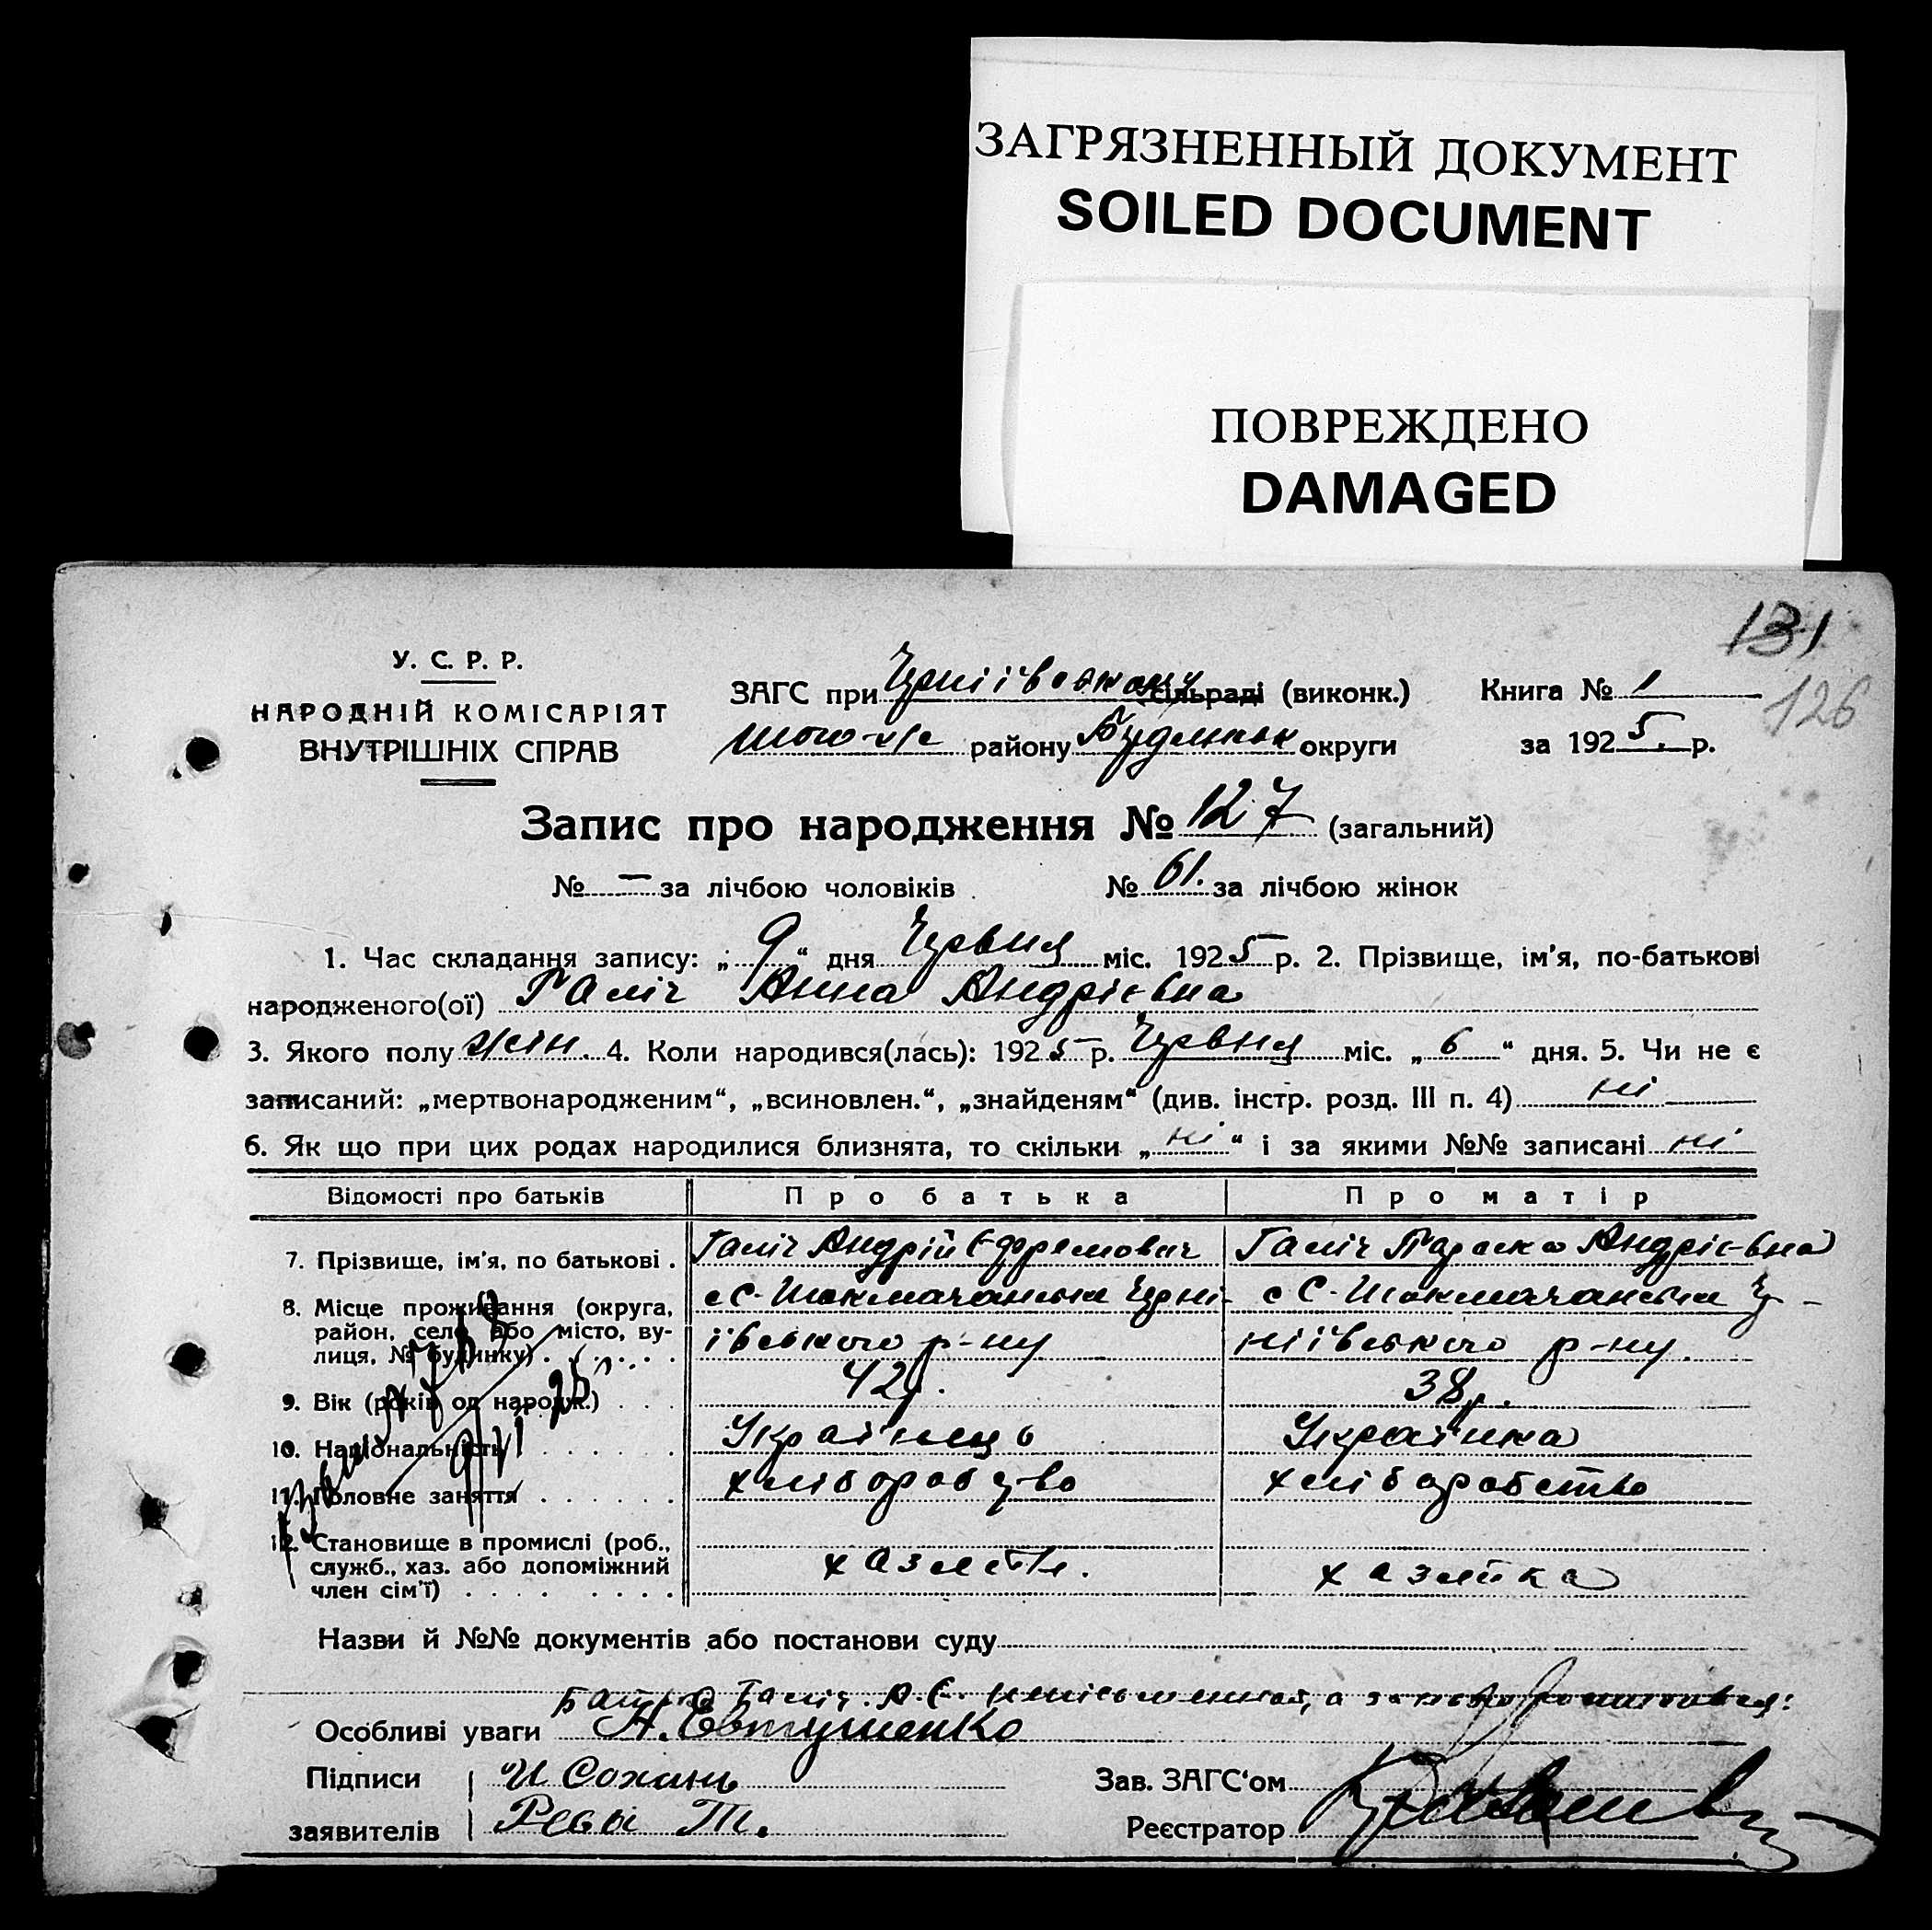 ЗАГРЯЗНЕННЫЙ ДОКУМЕНТ
SOILED DOCUMENT
ПОВРЕЖДЕНО
DAMAGED
131
126
У. С. Р. Р.
НАРОДНІЙ КОМІСАРІЯТ
ВНУТРІШНІХ СПРАВ
ЗАГС при сільраді (виконк.)
того-ж району округи
Книга № 1
за 1925 р.
Запис про народження № 127 (загальний)
№ – за лічбою чоловіків № 61. за лічбою жінок
1. Час складання запису: „9“ дня Червня міс. 1925 р. 2. Прізвище, ім'я, по-батькові
народженого(ої) Галіч Анна Андрієвна
3. Якого полу жін. 4. Коли народився(лась): 1925 р. Червня міс. „6“ дня. 5. Чи не є
записаний: „мертвонародженим“, „всиновлен.“, „знайденям“ (див. інстр. розд. III п. 4) ні
6. Як що при цих родах народилися близнята, то скільки „ні“ і за якими №№ записані ні
Відомості про батьків Про батька Про матір
7. Прізвище, ім'я, по батькові . Галіч Андрій Єфремович Галіч Параска Андрієвна
8. Місце проживання (округа, район, село або місто, вулиця, № будинку)
івського р-ну ніївського р-ну
9. Вік (років од народж.) . . . 42р. 38р.
10. Національність . . . . . . Українець Українка
11. Головне заняття . . . . . . хліборобство хліборобство
12. Становище в промислі (роб.,
служб., хаз. або допоміжний
член сім'ї) . . . . . . . хазяїн. хазяйка
Назви й №№ документів або постанови суду
Батько Галіч. А. Є.
Особливі уваги Н. Євтушенко
Підписи И Сохань
заявителів Рева Т.
Зав. ЗАГС'ом
Реєстратор